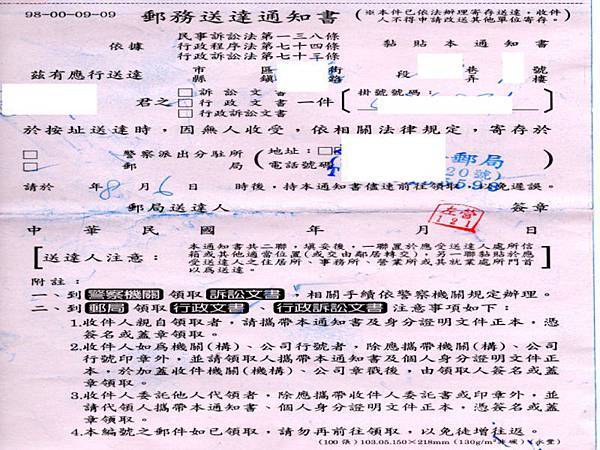 98-00-09-09
郵務送達通知書
(※本件已依法辦理寄存送達，收件人不得申請改送其他單位寄存。
依據
民事訴訟法第一三八條
行政程序法第七十四條
行政訴訟法第七十三條
黏貼本通知書
茲有應行送達
市縣 區鎮 街路 段 巷弄 號樓
君之
□訴訟文書
□行政文書
□行政訴訟文書
一件
(掛號號碼：
於按址送達時，因無人收受，依相關法律規定，寄存於
□ 警察派出分駐所
□ 郵局
(地址：
電話號碼
郵局
20號)
5598
請於 年8月6日 時後，持本通知書儘速前往領取，以免遲誤。
郵局送達人 簽章
左營
121
中華民國 年 月 日
[送達人注意：
本通知書共二聯，填妥後，一聯置於應受送達人處所信
箱或其他適當位置(或交由鄰居轉交)，另一聯黏貼於應
受送達人之住居所、事務所、營業所或其就業處所門首
以為送達。]
附註：
一、到警察機關領取訴訟文書，相關手續依警察機關規定辦理。
二、到郵局領取行政文書、行政訴訟文書注意事項如下：
1.收件人親自領取者，請攜帶本通知書及身分證明文件正本，憑
簽名或蓋章領取。
2.收件人如為機關(構)、公司行號者，除應攜帶機關(構)、公司
行號印章外，並請領取人攜帶本通知書及個人身分證明文件正
本，於加蓋收件機關(機構)、公司章戳後，由領取人簽名或蓋
章領取。
3.收件人委託他人代領者，除應攜帶收件人委託書或印章外，並
請代領人攜帶本通知書、個人身分證明文件正本，憑簽名或蓋
章領取。
4.本編號之郵件如已領取，請勿再前往領取，以免徒增往返。
(100張)103.05.150×218mm(130g/m²